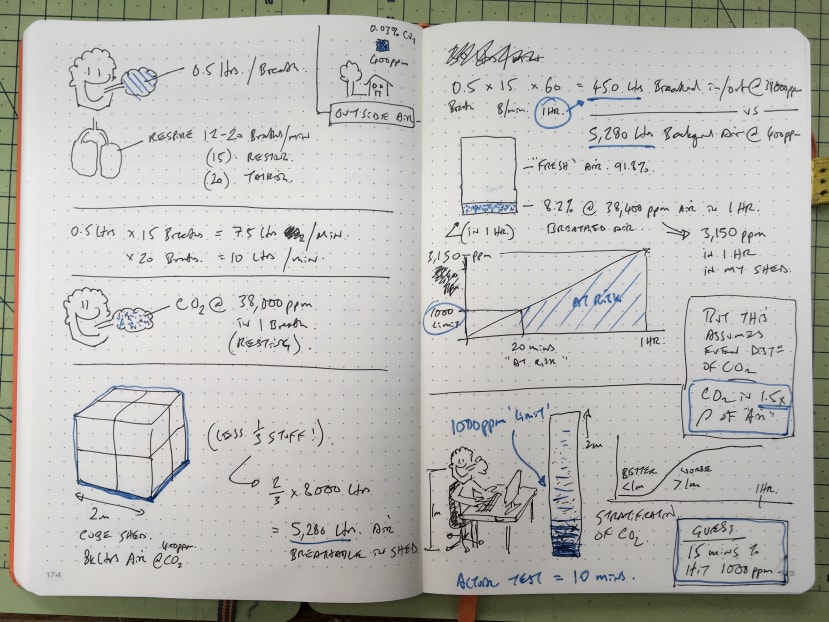 0.5 ltrs./Breath.
RESPIRE 12-20 Breaths/min
(15).
(20)
0.03% CO2
400ppm
OUTSIDE AIR
0.5 ltrs x 15 Breaths = 7.5 ltrs /min.
x 20 = 10 ltrs /min.
CO2 @ 38,000ppm
IN 1 Breath
(RESTING).
(LESS 1/3 STUFF!)
2/3 x 8000 ltrs
= 5,280 ltrs. AIR
BREATHABLE IN SHED.
2m
CUBE SHED.
8k ltrs AIR @ CO2
400ppm
174
0.5 x 15 x 60 = 450 ltrs Breathed in/out @
Breath B/min. 1HR.
VS
5,280 ltrs Air @ 400ppm
"FRESH" AIR 91.8%.
8.2% @ 38,400 ppm AIR IN 1 HR.
BREATHED AIR.
(IN 1 HR)
3,150 ppm
IN 1 HR
IN MY SHED.
3,150 ppm
1000
LIMIT
AT RISK
20 mins
"AT RISK"
1HR.
BUT THIS
ASSUMES
EVEN DIST=
OF CO2
CO2 IS 1.5x
ρ OF "AIR"
1000ppm 'LIMIT'
1m
2m
BETTER
<1m
WORSE
>1m
1HR.
STRATIFICATION
OF CO2.
GUESS.
15 mins to
HIT 1000ppm
ACTUAL TEST = 10 mins.